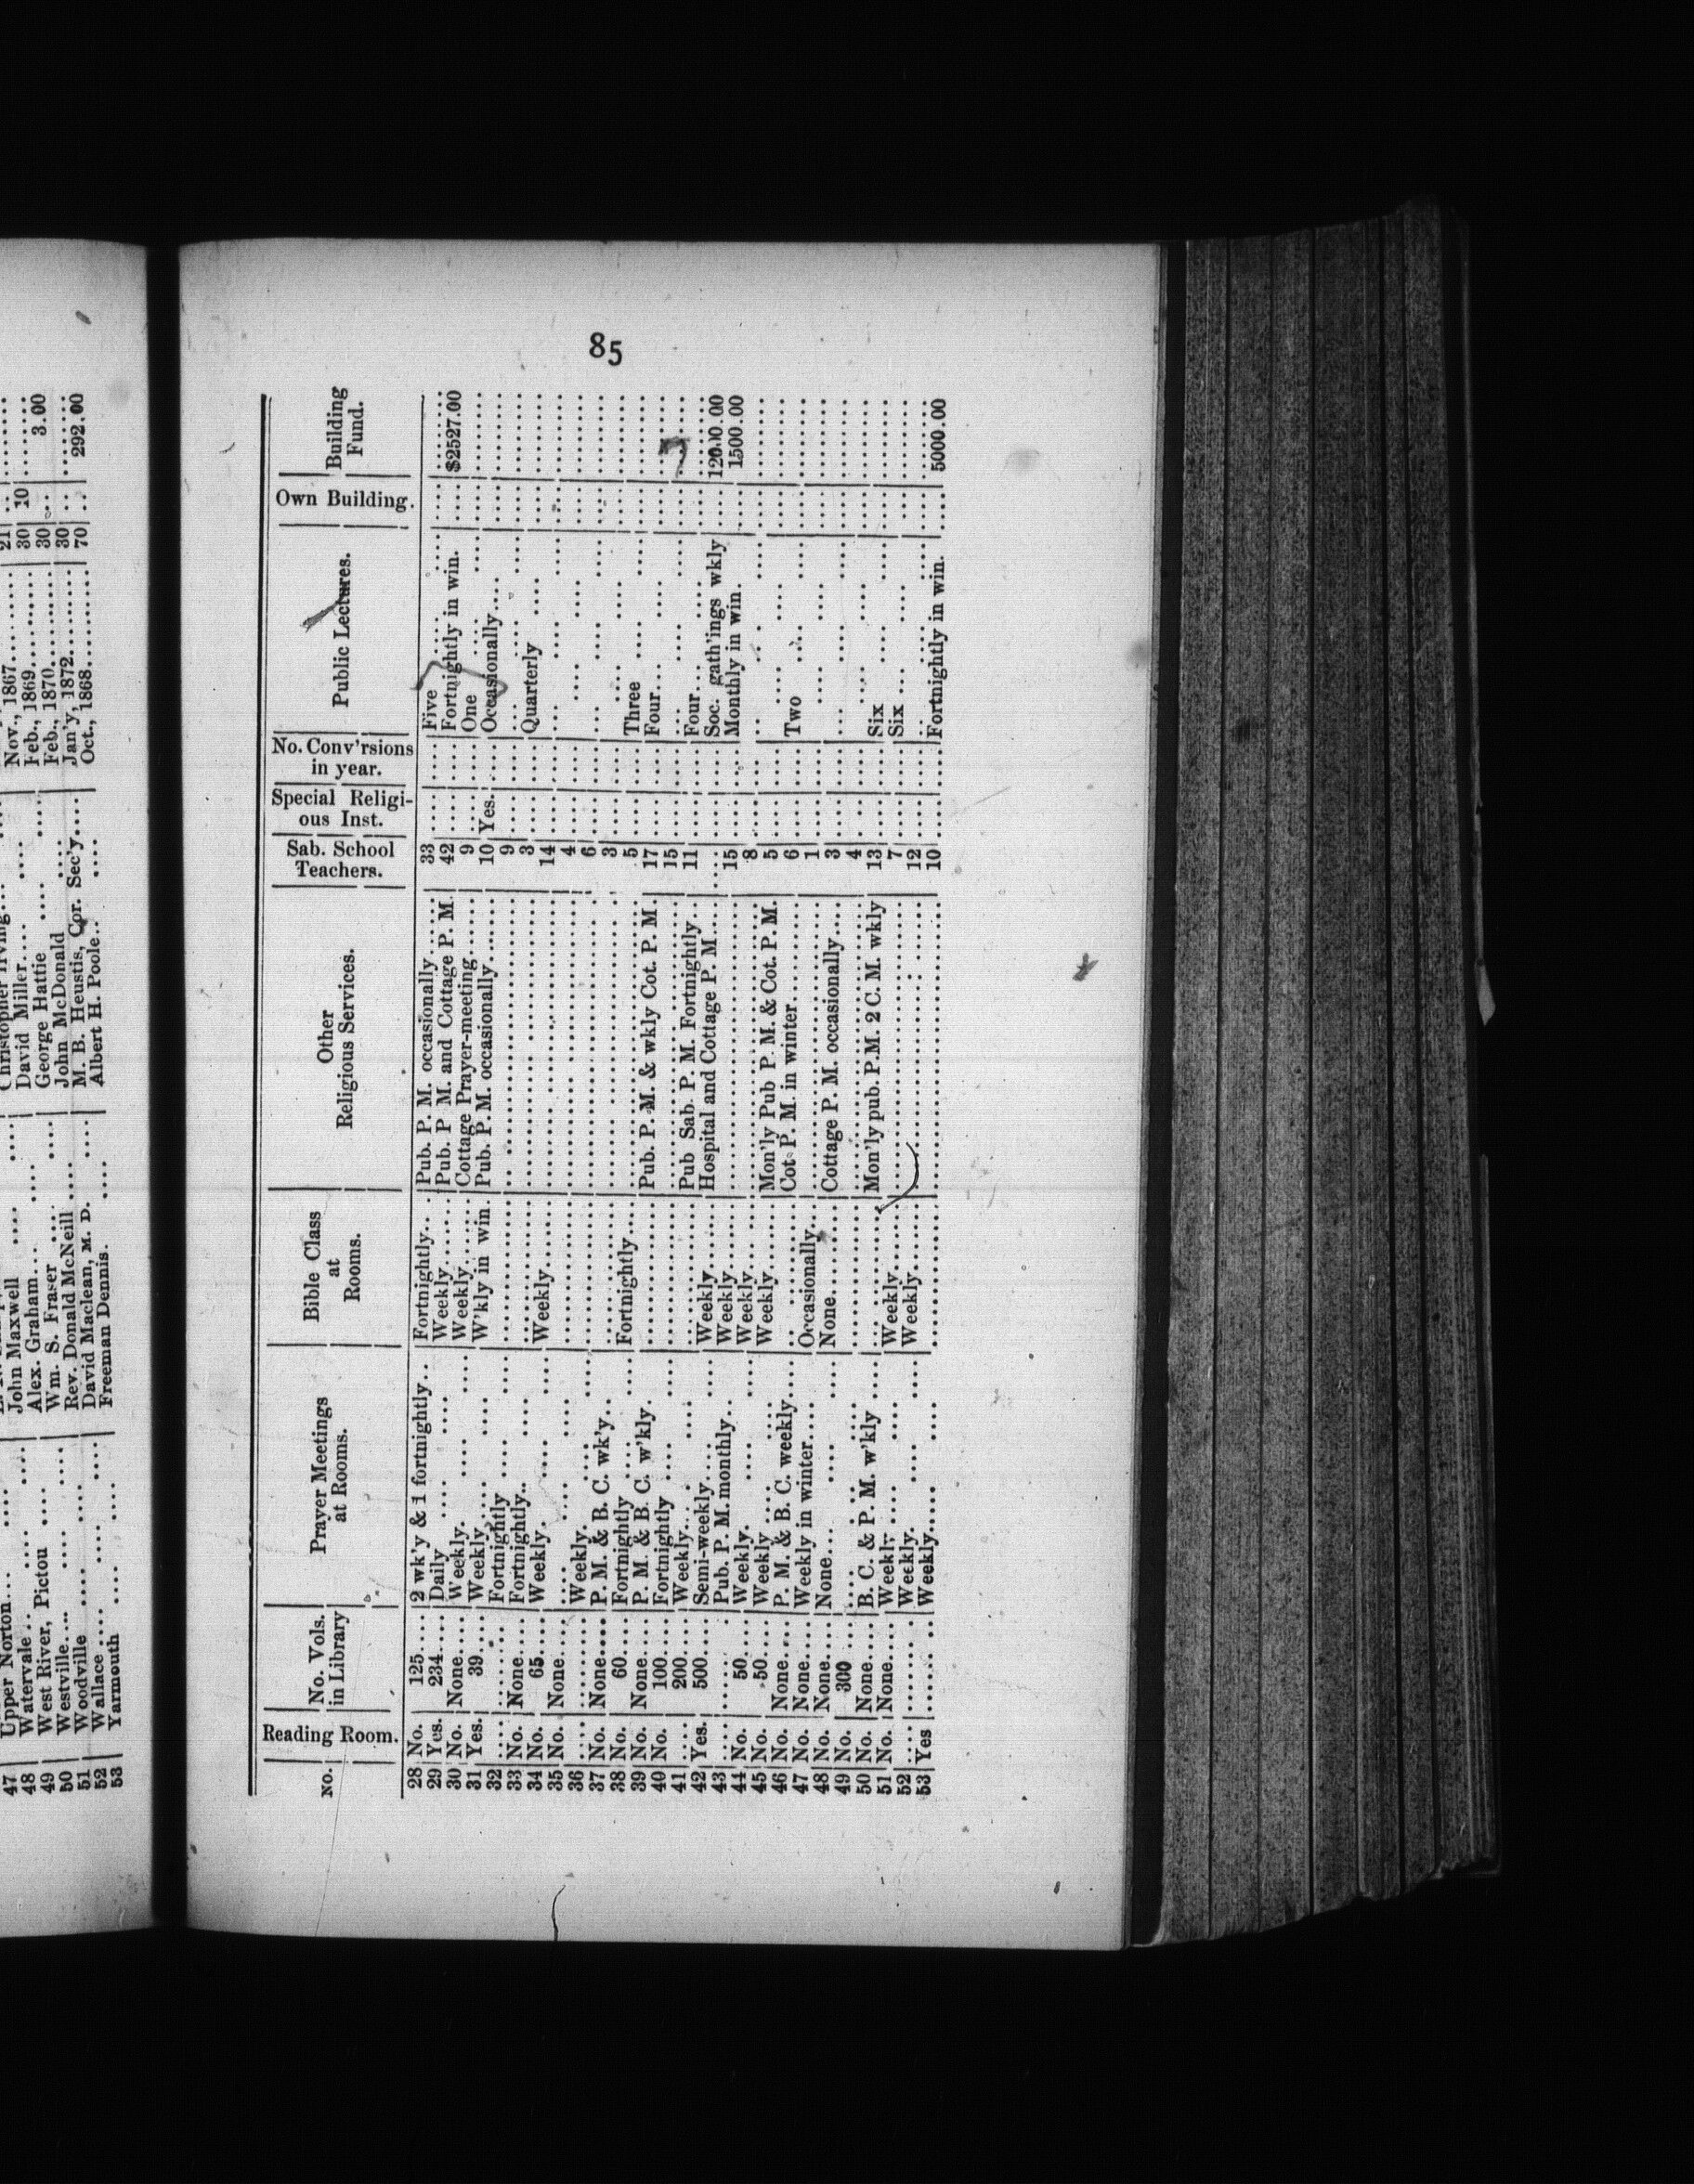 47 Upper Norton
48 Watervale John Maxwell
49 West River, Pictou Alex. Graham David Miller Nov., 1867 21
50 Westville Wm. S. Fraser George Hattie Feb., 1869 30 10
51 Woodville Rev. Donald McNeill John McDonald Feb., 1870 30 3.00
52 Wallace David Maclean, M. D. M. B. Heustis, Cor. Sec'y Jan'y, 1872 30
53 Yarmouth Freeman Dennis Albert H. Poole Oct., 1868 70 292.00
85
No. Reading Room. No. Vols. in Library Prayer Meetings at Rooms. Bible Class at Rooms. Other Religious Services. Sab. School Teachers. Special Religious Inst. No. Conv'rsions in year. Public Lectures. Own Building. Building Fund.
28 No. 125 2 wk'y & 1 fortnightly Fortnightly Pub. P. M. occasionally 33 Five
29 Yes. 234 Daily Weekly Pub. P M. and Cottage P. M. 42 Fortnightly in win. $2527.00
30 No. None Weekly. Weekly Cottage Prayer-meeting 9 One
31 Yes. 39 Weekly W'kly in win. Pub. P. M. occasionally 10 Yes. Occasionally
32 Fortnightly 9
33 No. None Fortnightly 3 Quarterly
34 No. 65 Weekly. Weekly 14
35 No. None 4
36 Weekly. 6
37 No. None P. M. & B. C. wk'y 3
38 No. 60 Fortnightly Fortnightly 5 Three
39 No. None P. M. & B. C. w'kly. Pub. P. M. & wkly Cot. P. M. 17 Four
40 No. 100 Fortnightly 15
41 200 Weekly Pub Sab. P. M. Fortnightly 11 Four
42 Yes. 500 Semi-weekly Weekly Hospital and Cottage P. M Soc. gath'ings wkly 1200.00
43 Pub. P. M. monthly Weekly 15 Monthly in win. 1500.00
44 No. 50 Weekly. Weekly 8
45 No. 50 Weekly Weekly Mon'ly Pub P M. & Cot. P. M. 5
46 No. None P. M. & B. C. weekly Cot P. M. in winter 6 Two
47 No. None Weekly in winter Occasionally 1
48 No. None None None Cottage P. M. occasionally 3
49 No. 300 4
50 No. None B. C. & P. M. w'kly Mon'ly pub. P.M. 2 C. M. wkly 13 Six
51 No. None Weekly Weekly 7 Six
52 Weekly. Weekly 12
53 Yes Weekly 10 Fortnightly in win. 5000.00